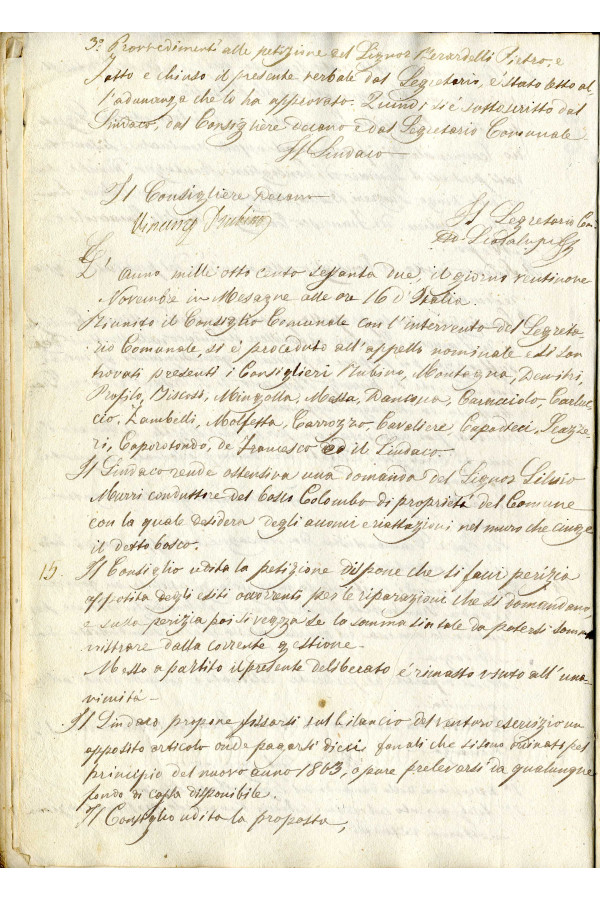 3º Provvedimenti alle petizione del Signor Berardelli Pietro, e
Fatto e chiuso il presente verbale dal Segretario, e' stato letto al-
l'adunanza che lo ha approvato. Quindi si è sottoscritto dal
Sindaco, dal Consigliere decano e dal Segretario Comunale
Il Sindaco
Il Consigliere Decano
Il Segretario Com.
L'anno mille otto cento sessanta due, il giorno ventinove
Novembre in Mesagne alle ore 16 d'Italia.
Riunito il Consiglio Comunale con l'intervento del Segreta-
rio Comunale, si è proceduto all'appello nominale e si son
trovati presenti i Consiglieri Rubino, Montagna, Demitri,
Profilo, Biscosi, Mingolla, Messa, Dancosa, Caracciolo, Carluc-
cio, Zambelli, Molfetta, Carrozzo, Cavaliere Capodieci, Scazze-
ri, Caporotondo, de Francesco ed il Sindaco.
Il Sindaco rende ostensiva una domanda del Signor Silvio
Murri conduttore del bosco Colombo di proprietà del Comune
con la quale desidera degli acconci e riattazioni nel muro che cinge
il detto bosco.
15. Il Consiglio udita la petizione dispone che si facci perizia
apposita degli esiti occorrenti per le riparazioni che si domandano,
e sulla perizia poi si vegga se la somma sia tale da potersi som-
ministrare dalla corrente gestione.
Messo a partito il presente deliberato é rimasto votato all'una-
nimità.
Il Sindaco propone fissarsi sul bilancio del venturo esercizio un
apposito articolo onde pagarsi dieci fanali che si sono ordinati pel
principio del nuovo anno 1863, o pure prelevarsi da qualunque
fondo di cassa disponibile.
Il Consiglio udita la proposta,